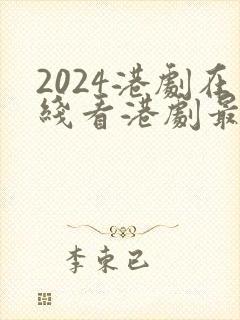 2024港劇在
綫看港劇最
李束已